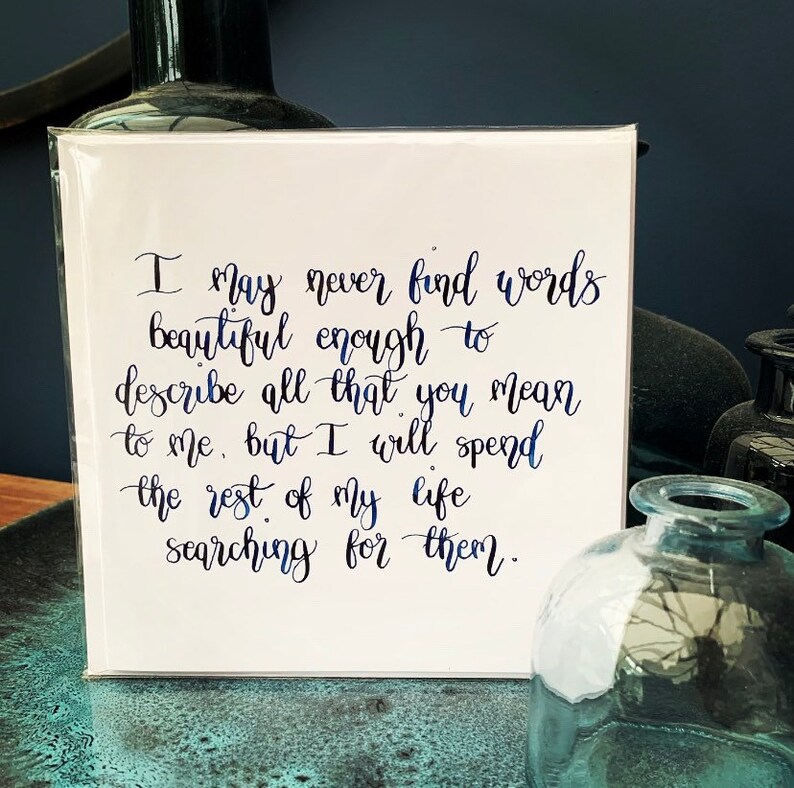 I may never find words
beautiful enough to
describe all that you mean
to me, but I will spend
the rest of my life
searching for them.